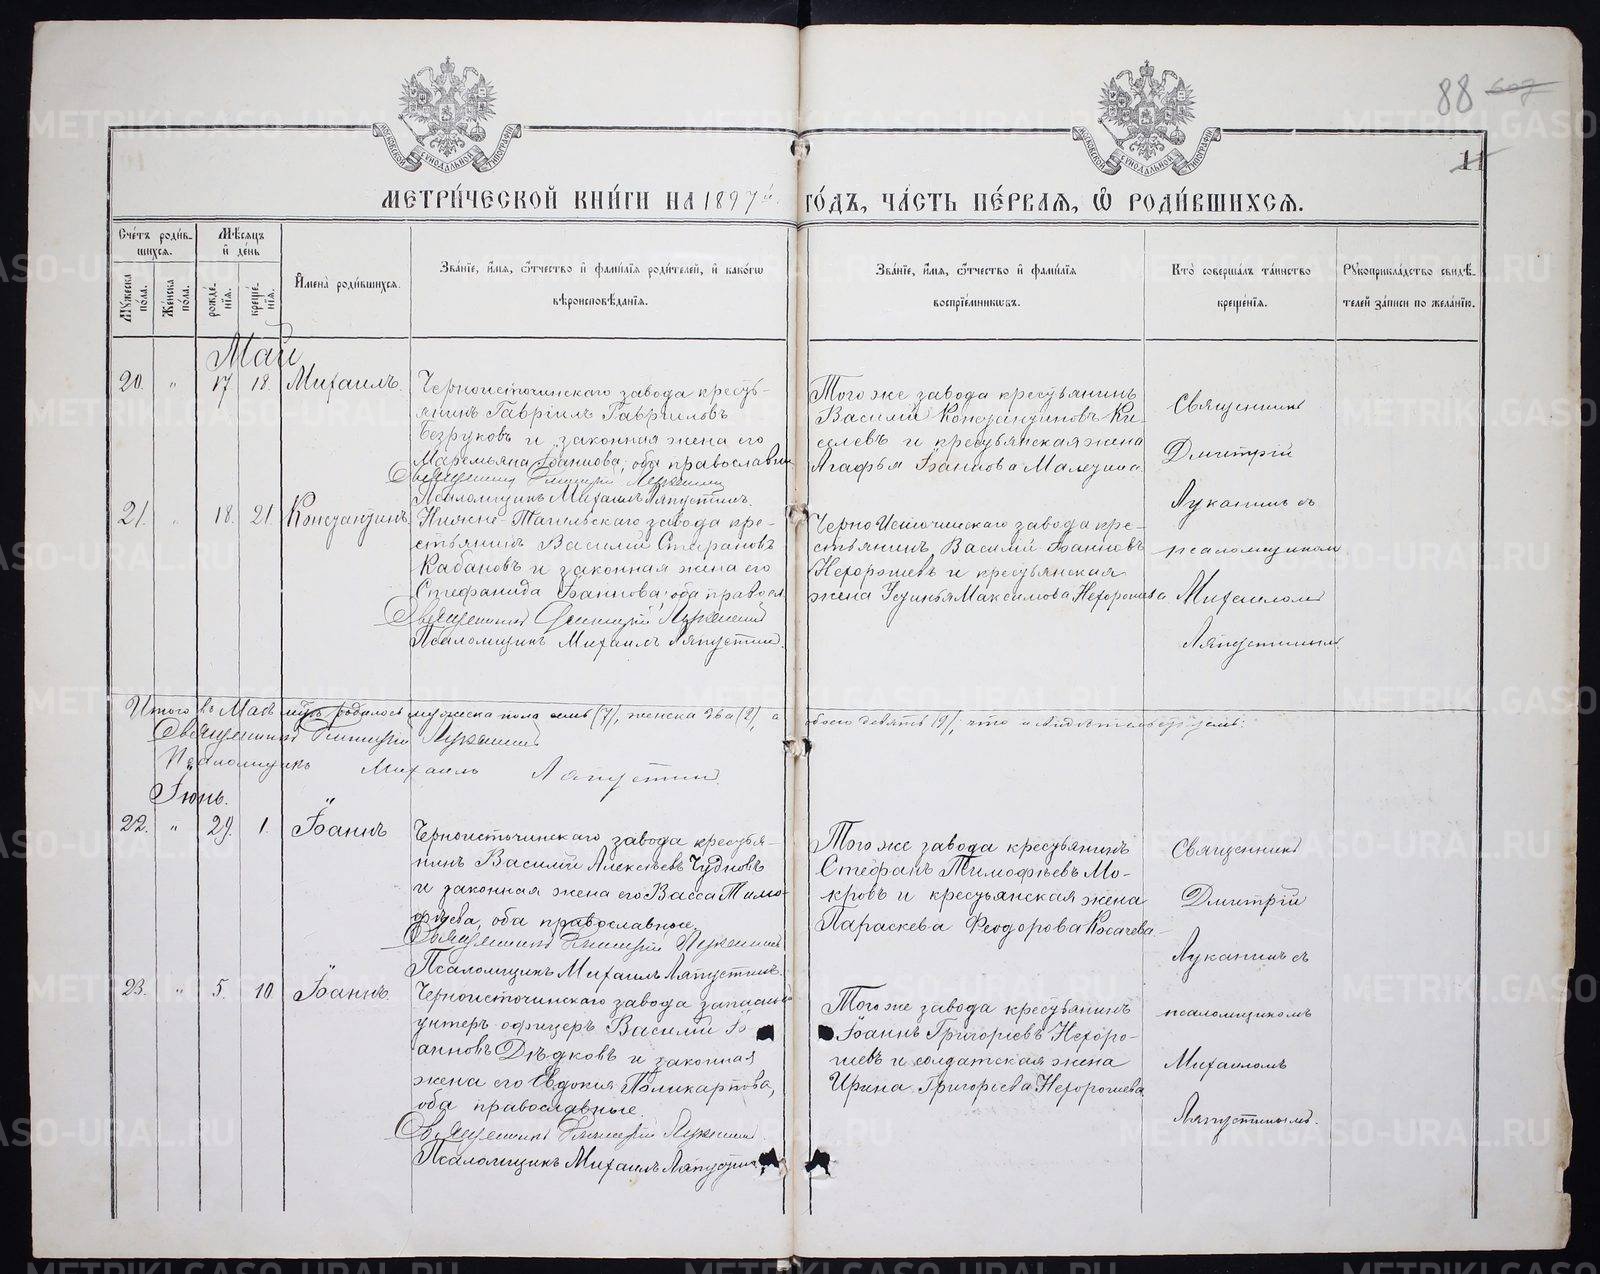 88 607
11
МОСКОВСКОЙ СѴНОДАЛЬНОЙ ТИПОГРАФІИ
МОСКОВСКОЙ СѴНОДАЛЬНОЙ ТИПОГРАФІИ
МЕТРИ́ЧЕСКОЙ КНИ́ГИ НА 1897й ГО́ДЪ, ЧА́СТЬ ПЕ́РВАѦ, Ѽ РОДИ́ВШИХСѦ.
Сче́тъ роди́в-
шихся.
Мѣ́сяцъ
и҆ де́нь
Мꙋжеска пола.
Же́нска пола.
рожде́-
нїѧ.
креще́-
нїѧ.
И҆мена̀ роди́вшихся.
Зва́нїе, и҆́мѧ, ѻ҆́тчество и҆ фами́лїѧ роди́телей, и҆ како́гѡ
вѣроисповѣ́данїѧ.
Зва́нїе, и҆́мѧ, ѻ҆́тчество и҆ фами́лїѧ
воспрїе́мникѡвъ.
Кто̀ соверша́лъ та́инство
креще́нїѧ.
Рꙋкоприкла́дство свидѣ́-
телей за́писи по жела́нїю.
Май
20. " 17 18. Михаилъ.
Черноисточинскаго завода кресть-
янинъ Гавріилъ Гавриловъ
Безруковъ и законная жена его
Маремьяна Іоаннова, оба православн
Священникъ Димитрій Луканинъ
Псаломщикъ Михаилъ Ляпустинъ.
Того же завода крестьянинъ
Василій Константиновъ Ки-
селевъ и крестьянская жена
Агафья Іоаннова Малегина
Священникъ
Дмитрій
Луканинъ съ
псаломщикомъ
Михаиломъ
Ляпустинымъ
21. " 18. 21. Константинъ.
Нижне-Тагильскаго завода кре-
стьянинъ Василій Стефановъ
Кабановъ и законная жена его
Стефанида Іоаннова, оба правосл
Священникъ Димитрій Луканинъ
Псаломщикъ Михаилъ Ляпустинъ.
Черно Источинскаго завода кре-
стьянинъ Василій Іоанновъ
Нехорошевъ и крестьянская
жена Устинья Максимова Нехорошева
Итого въ Маѣ мцѣ родилось мужеска пола семь (7), женска два (2), а обоего девять (9), что и свидѣтельствуемъ:
Священникъ Димитрій Луканинъ
Псаломщикъ Михаилъ Ляпустинъ
Іюнь.
22. " 29. 1. Іоаннъ
Черноисточинскаго завода крестья-
нинъ Василій Алексѣевъ Чудновъ
и законная жена его Васса Тимо-
фѣева, оба православные.
Священникъ Димитрій Луканинъ
Псаломщикъ Михаилъ Ляпустинъ.
Того же завода крестьянинъ
Стефанъ Тимофѣевъ Мо-
кровъ и крестьянская жена
Параскева Феодорова Косачева
Священникъ
Дмитрій
Луканинъ съ
псаломщикомъ
Михаиломъ
Ляпустинымъ.
23. " 5. 10 Іоаннъ.
Черноисточинскаго завода запасный
унтеръ-офицеръ Василій Іо-
анновъ Дѣдковъ и законная
жена его Евдокия Поликарпова,
оба православные.
Священникъ Димитрій Луканинъ.
Псаломщикъ Михаилъ Ляпустинъ
Того же завода крестьянинъ
Іоаннъ Григорьевъ Нехоро-
шевъ и солдатская жена
Ирина Григорьева Нехорошева
METRIKI.GASO-URAL.RU